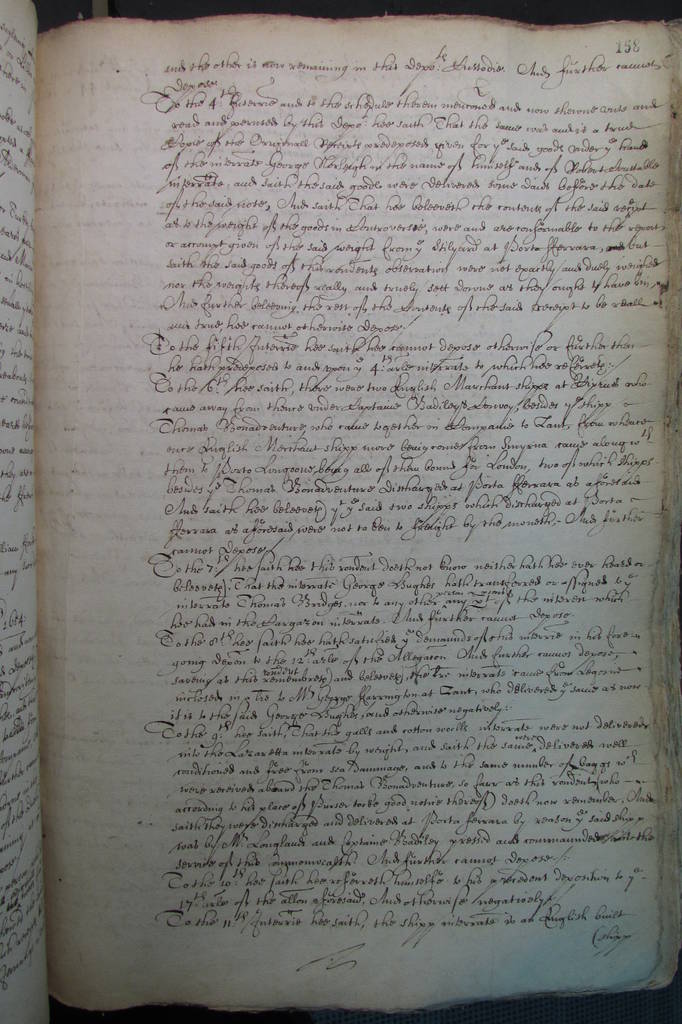 158
and the other is now remaining in this depo:ts Custodie. And further cannot
depose./
To the 4th Interrie and to the schedule therein mencioned and now shewne unto and
read and perused by this depo:t hee saith That the same was and is a true
Copie of the Originall Receipts predeposed given for ye said goods under ye hand
of the interrate George in the name of himselfe and of Robert
interrate, and saith the said goods were delivered some daies before the date
of the said note, And saith That hee beleeveth the contents of the said receipt
as to the weight of the goods in Controversie, were and are conformable to the report
or accompt given of the said weight from ye Stilyard at Porto Ferrara, but
saith the said goods of this rendents observation were not exactly and duely weighed
nor the weights thereof really and truely sett downe as they ought to have bin,
And further beleeving the rest of the Contents of the said Receipt to be reall
and true, hee cannot otherwise depose./
To the fifth Interrie hee saith hee cannot depose otherwise or further then
he hath predeposed to and upon ye 4th: arle interrate to which hee referreth:
To the 6th: hee saith, there were two English Merchant shipps at who
came away from thence under Captaine Badileys Convoy, besides ye shipp
Thomas Bonadventure, who came together in Companie to Zant, from whence
one English Merchant shipp more being come from Smyrna came along wth
them to Porto Longone, being all of them bound for London, two of which shipps
besides ye Thomas Bonadventure discharged at Porto Ferrara as aforesaid
And saith hee beleeveth yt ye said two shipps which discharged at Porta
Ferrara as aforesaid were not to bee to freight by the moneth. And further
cannot depose./
To the 7:th hee saith hee this rendent doeth not know neither hath hee ever heard or
beleeveth, That the interrate George Hughes hath transferred or assigned to ye
interrate Thomas Bridges, nor to any other person any pt of the interest which
hee had in the Cargazon interrate. And further cannot depose.
To the 8th: hee saith hee hath satisfied ye demaunds of this interrie in his fore
going deposn to the 12th: arle of the Allegation And further cannot depose,
saveing as this rendent remembreth and beleeveth, the interrate came from Legorne
inclosed in a to Mr George Harrington at Zant, who delivered ye same as now
it is to the said George Hughes, and otherwise negatively:.
To the 9:th hee saith, That the galls and cotton wolls interrate were not delivered
into the Lazaretta interrate by weight, and saith the same were delivered well
conditioned and free from sea dammage, and to the same number of baggs wch
were received aboard the Thomas Bonadventure, so farr as this rendent (who
according to his place of Purser tooke good notice thereof) doeth now remember. And
saith they were discharged and delivered at Porta Ferrara by reason ye said shipp
was by Mr Longland and Captaine Badiley pressed and commaunded into the
service of this Commonwealth. And further cannot depose:/.
To the 10:th hee saith hee referreth himselfe to his precedent deposition to ye
17th: arle of the allon aforesaid, And otherwise negatively./
To the 11:th Interrie hee saith, the shipp interrate is an English built
(shipp